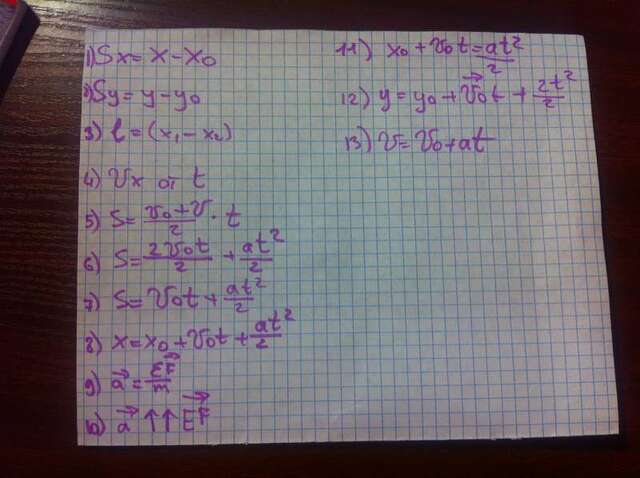 1) Sx = x - x₀
2) Sy = y - y₀
3) ℓ = (x₁ - x₂)
4) Vx от t
5) S = (v₀ + v)/2 · t
6) S = 2v₀t/2 + at²/2
7) S = v₀t + at²/2
8) x = x₀ + v₀t + at²/2
9) a⃗ = ΣF⃗/m
10) a⃗ ↑↑ ΣF⃗
11) x₀ + v₀t = at²/2
12) y = y₀ + v⃗₀t + 2t²/2
13) v = v₀ + at